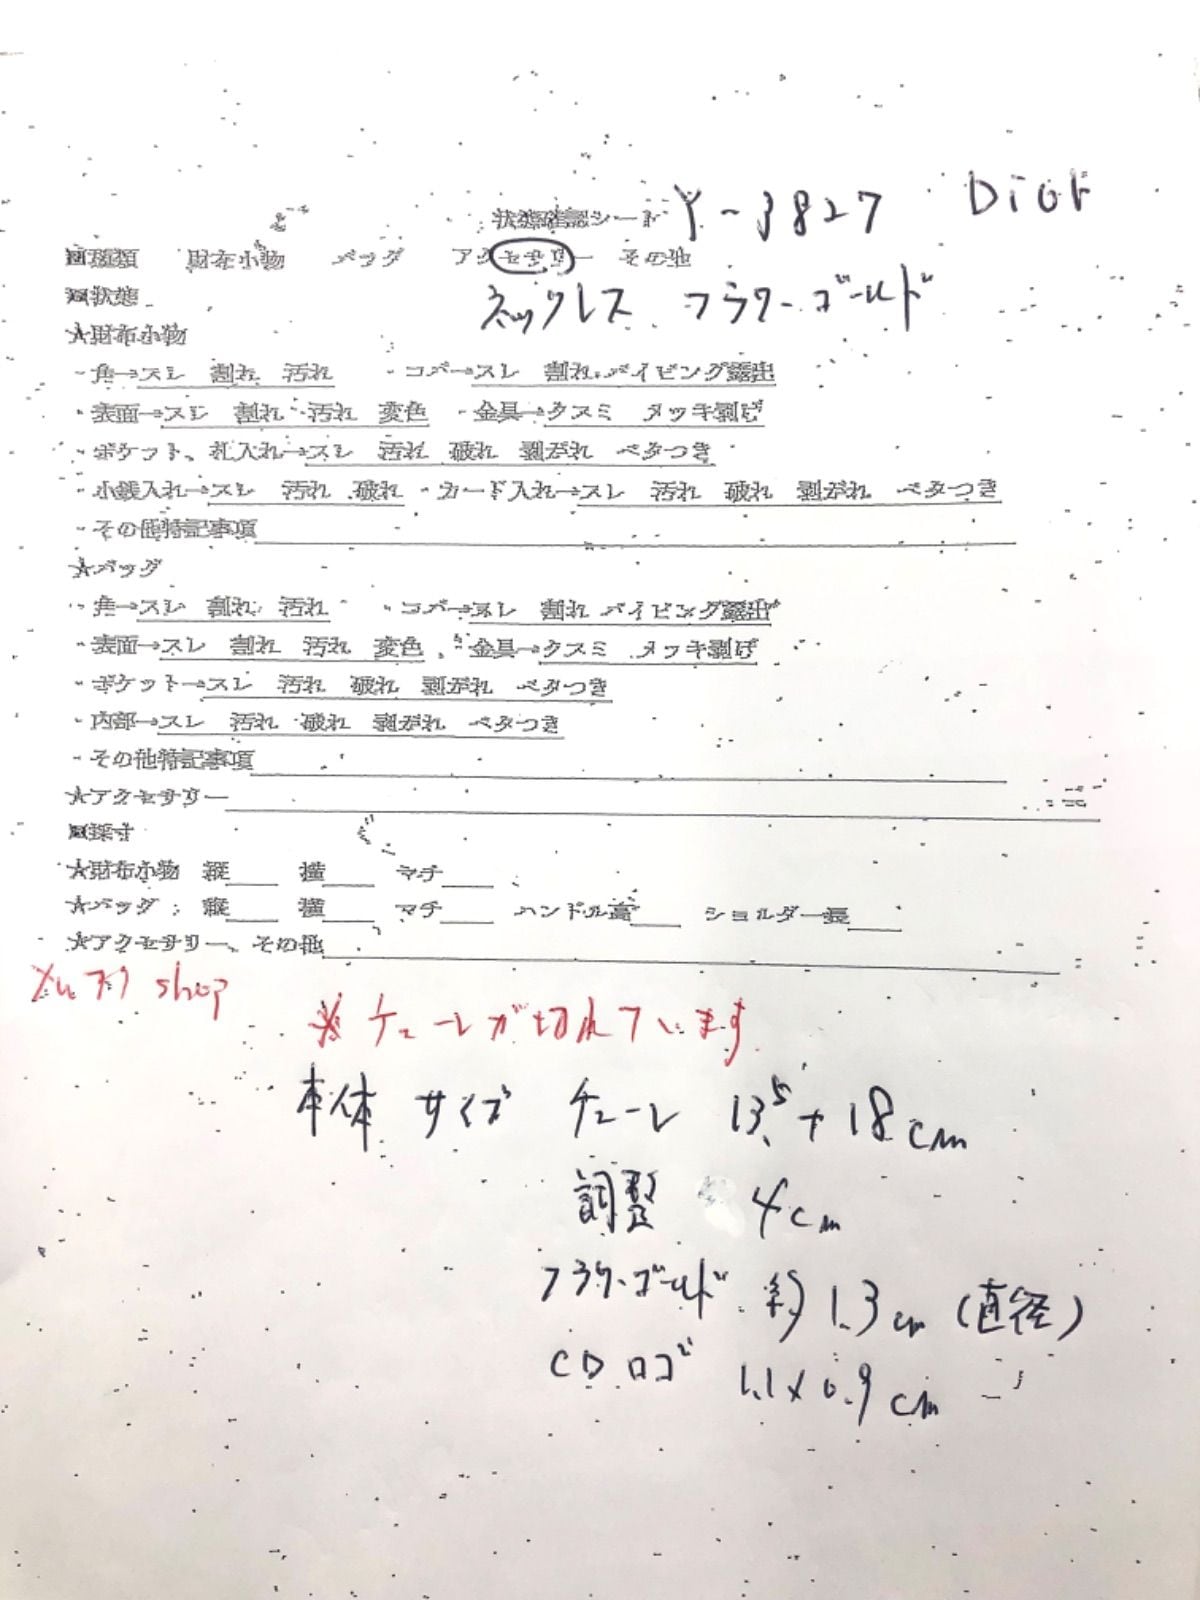 状態確認シート Y-3827 Dior
■種類 財布小物 バッグ アクセサリー その他
■状態 ネックレス フラワーゴールド
★財布小物
・角→スレ 割れ 汚れ ・コバ→スレ 割れ パイピング露出
・表面→スレ 割れ 汚れ 変色 ・金具→クスミ メッキ剥げ
・ポケット、札入れ→スレ 汚れ 破れ 剥がれ ベタつき
・小銭入れ→スレ 汚れ 破れ ・カード入れ→スレ 汚れ 破れ 剥がれ ベタつき
・その他特記事項
★バッグ
・角→スレ 割れ 汚れ ・コバ→スレ 割れ パイピング露出
・表面→スレ 割れ 汚れ 変色 ・金具→クスミ メッキ剥げ
・ポケット→スレ 汚れ 破れ 剥がれ ベタつき
・内部→スレ 汚れ 破れ 剥がれ ベタつき
・その他特記事項
★アクセサリー
■採寸
★財布小物 縦 横 マチ
★バッグ 縦 横 マチ ハンドル高 ショルダー長
★アクセサリー、その他
shop
※チェーンが切れています
本体サイズ チェーン 13.5+18cm
調整 4cm
フラワーゴールド 約1.3cm(直径)
CDロゴ 1.1×0.9cm